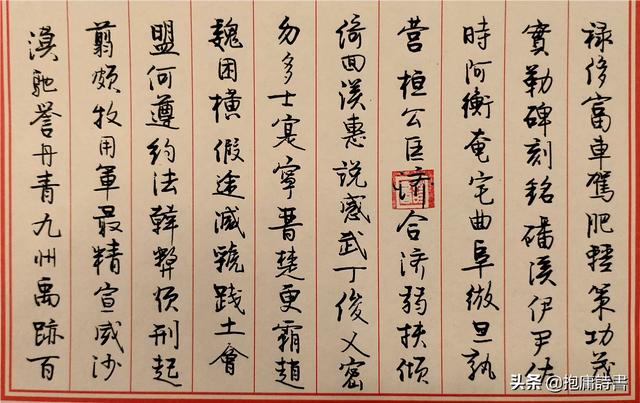 禄侈富車駕肥輕策功茂
實勒碑刻銘磻溪伊尹佐
時阿衡奄宅曲阜微旦孰
营桓公匡濟合济弱扶傾
綺回漢惠說感武丁俊乂密
勿多士寔寧晉楚更霸趙
魏困橫假途滅虢踐土會
盟何遵約法韓弊煩刑起
翦頗牧用軍最精宣威沙
漠馳譽丹青九州禹跡百
头条 @抱庸詩書